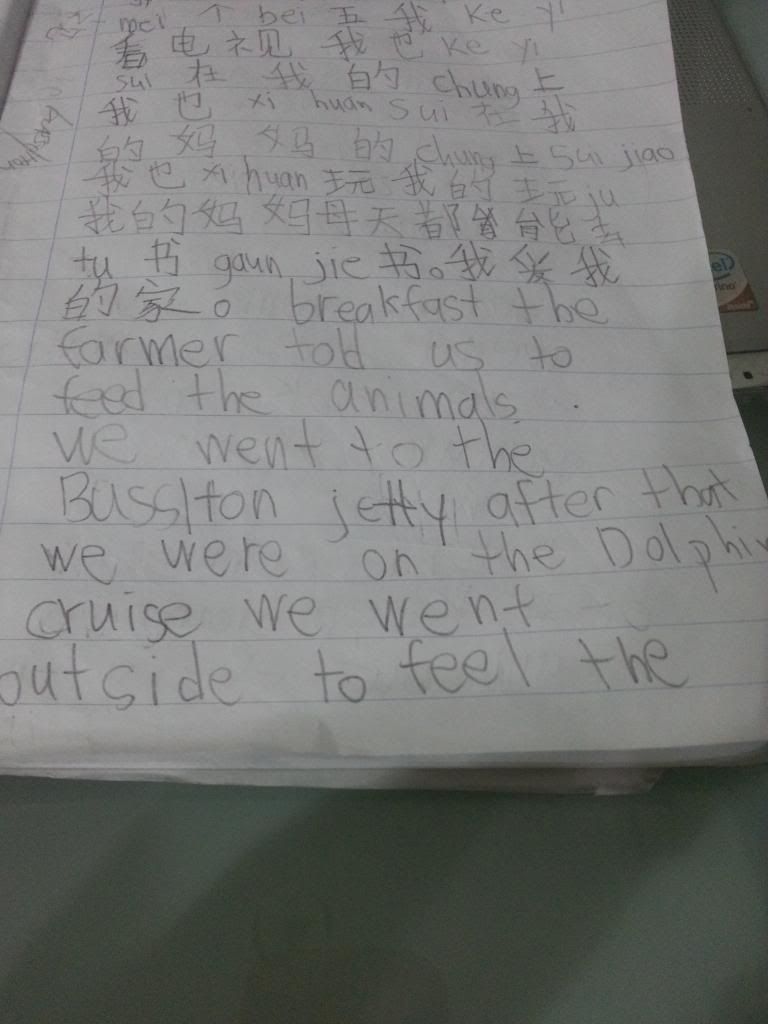 mei 个 bei 五 我 ke yi
看 电 视 我 也 ke yi
sui 在 我 的 chung 上
我 也 xi huan sui 在 我
的 妈 妈 的 chung 上 sui jiao
我 也 xi huan 玩 我 的 玩 ju
我 的 妈 妈 母 天 都 能 去
tu 书 gaun jie 书。我 爱 我
的 家。 breakfast the
farmer told us to
feed the animals.
we went to the
Busslton jetty after that
we were on the Dolphin
cruise we went
outside to feel the